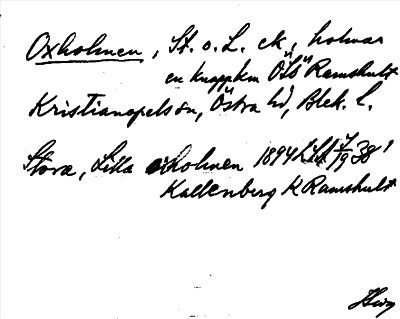 Oxholmen, St. o. L. ek., holmar
en knapp km ÖSÖ Ramshult
Kristianopels sn, Östra hd, Blek. l.
Stora, Lilla oxholmen 1894
Kallenberg K Ramshult